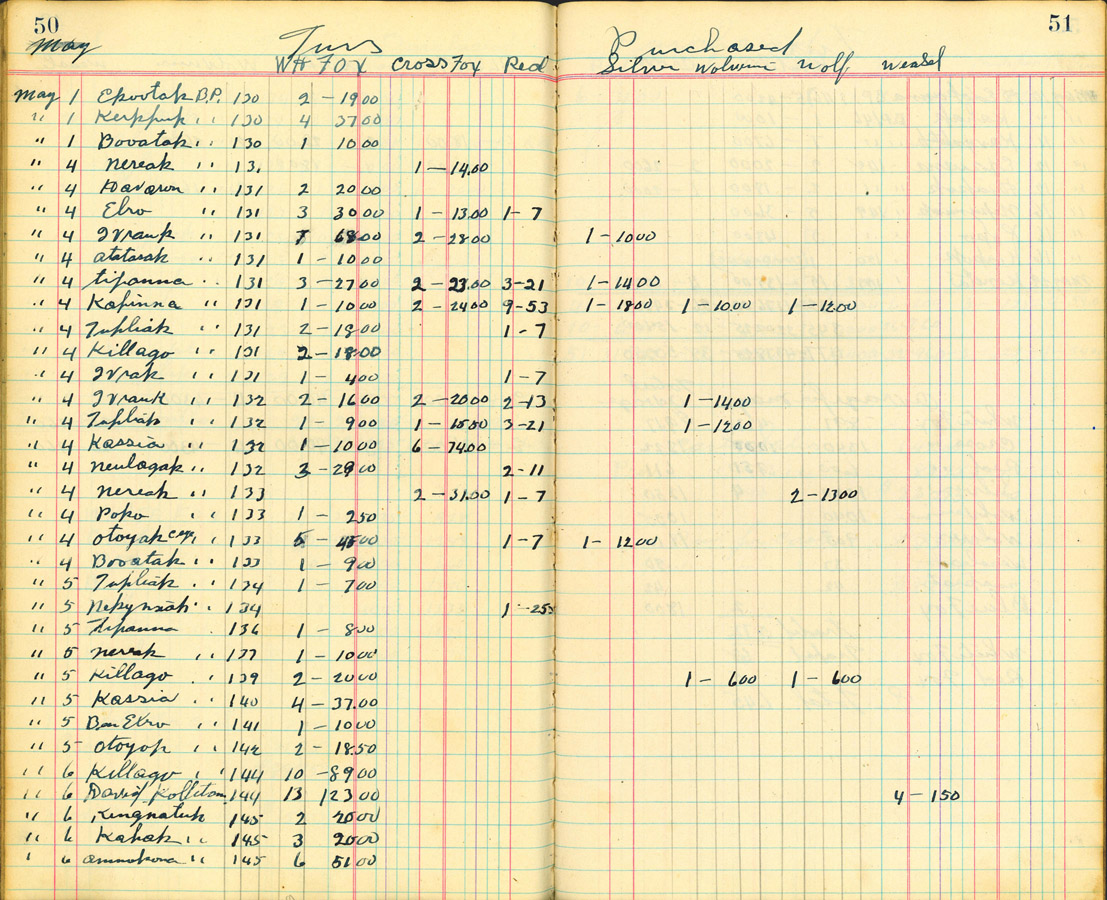 50 51
May
Furs Purchased
Wh Fox Cross Fox Red Silver Wolverine Wolf Weasel
May 1 Ekootak B.P. 130 2 - 19 00
" 1 130 4 37 00
" 1 Booatak " " 130 1 10 00
" 4 Nereak " " 131 1 - 14.00
" 4 " " 131 2 20 00
" 4 Ebro " " 131 3 30 00 1 - 13.00 1 - 7
" 4 Ivrauk " " 131 7 68 00 2 - 28 00 1 - 10 00
" 4 atatarak " " 131 1 - 10 00
" 4 tipanna " " 131 3 - 27 00 2 - 23.00 3 - 21 1 - 14 00
" 4 Kapinna " " 131 1 - 10 00 2 - 24 00 9 - 53 1 - 18 00 1 - 10 00 1 - 12 00
" 4 Tupliak " " 131 2 - 18 00 1 - 7
" 4 Killago " " 131 2 - 18 00
" 4 Ivrak " " 131 1 - 4 00 1 - 7
" 4 Ivrauk " " 132 2 - 16 00 2 - 20 00 2 - 13 1 - 14 00
" 4 Tupliak " " 132 1 - 9 00 1 - 15 00 3 - 21 1 - 12 00
" 4 Kassia " " 132 1 - 10 00 6 - 74.00
" 4 neulagak " " 132 3 - 29 00 2 - 11
" 4 nereak " " 133 2 - 31.00 1 - 7 2 - 13 00
" 4 Poko " " 133 1 - 2 50
" 4 otoyak " 133 5 - 45 00 1 - 7 1 - 12 00
" 4 Booatak " " 133 1 - 9 00
" 5 Tupliak " " 134 1 - 7 00
" 5 " " 134 1 - 255
" 5 tipanna " 136 1 - 8 00
" 5 nereak " " 137 1 - 10 00
" 5 Killago " " 139 2 - 20 00 1 - 6 00 1 - 6 00
" 5 Kassia " " 140 4 - 37.00
" 5 Ben Ebro " " 141 1 - 10 00
" 5 Otoyok " " 142 2 - 18.50
" 6 Killago " " 144 10 - 89 00
" 6 David 144 13 123 00 4 - 150
" 6 Kingnatuk 145 2 20 00
" 6 Kahak " " 145 3 20 00
" 6 " " 145 6 51 00